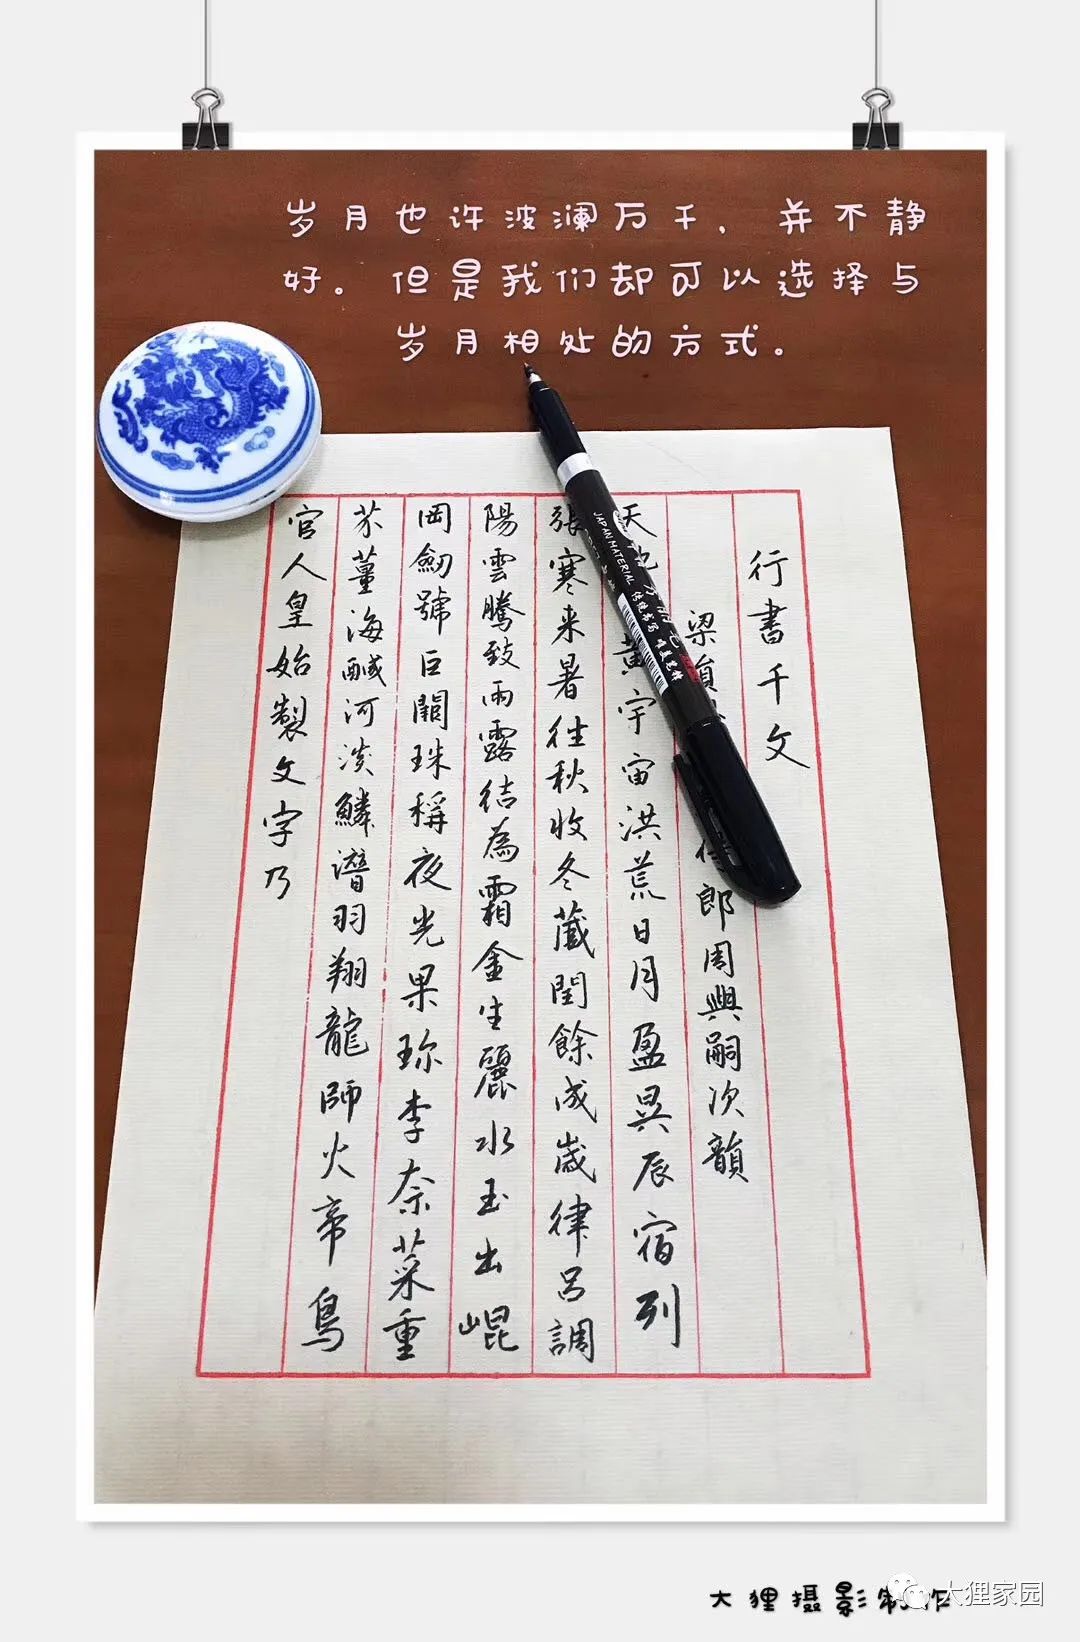 岁月也许波澜万千，并不静
好。但是我们却可以选择与
岁月相处的方式。
行書千文
梁 郎周興嗣次韻
天 黄宇宙洪荒日月盈昃辰宿列
張寒来暑往秋收冬藏閏餘成歲律呂調
陽雲騰致雨露結為霜金生麗水玉出崐
岡劒號巨闕珠稱夜光果珎李奈菜重
芥薑海醎河淡鱗潛羽翔龍師火帝鳥
官人皇始製文字乃
JAPAN MATERIAL
大狸摄影制作
大狸家园